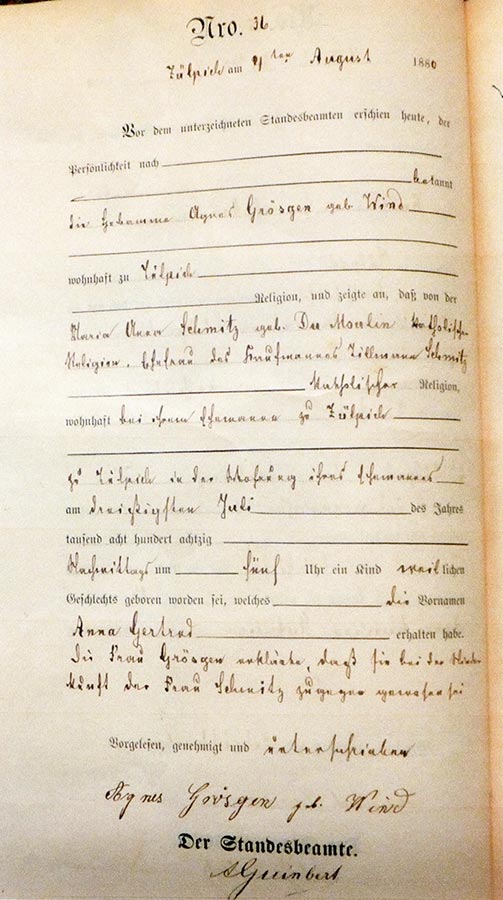 Nro. 36
Zülpich am 4ten August 1880
Vor dem unterzeichneten Standesbeamten erschien heute, der
Persönlichkeit nach
bekannt
die Hebamme Agnes Grösgen geb. Wind
wohnhaft zu Zülpich
Religion, und zeigte an, daß von der
Maria Anna Schmitz geb. Du Moulin katholischer
Religion, Ehefrau des Kaufmannes Tillmann Schmitz
katholischer Religion,
wohnhaft bei ihrem Ehemanne zu Zülpich
zu Zülpich in der Wohnung ihres Ehemannes
am dreißigsten Juli des Jahres
tausend acht hundert achtzig
Nachmittags um fünf Uhr ein Kind weiblichen
Geschlechts geboren worden sei, welches die Vornamen
Anna Gertrud erhalten habe.
Die Frau Grösgen erklärte, daß sie bei der Nieder-
kunft der Frau Schmitz zugegen gewesen sei
Vorgelesen, genehmigt und unterschrieben
Agnes Grösgen geb. Wind
Der Standesbeamte.